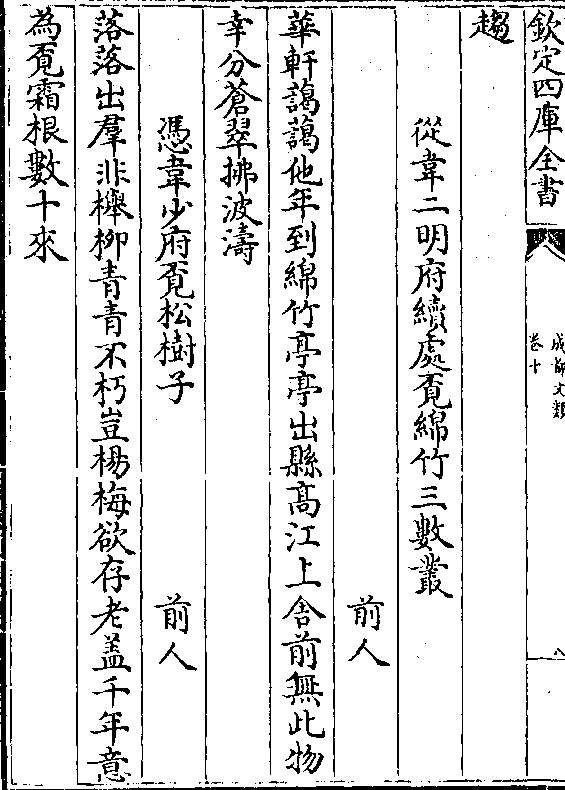 欽定四庫全書
成都文類
卷十
八
趨
從韋二明府續處覓綿竹三數叢
前人
華軒藹藹他年到綿竹亭亭出縣高江上舍前無此物
幸分蒼翠拂波濤
憑韋少府覓松樹子
前人
落落出羣非櫸柳青青不朽豈楊梅欲存老盖千年意
為覓霜根數十來